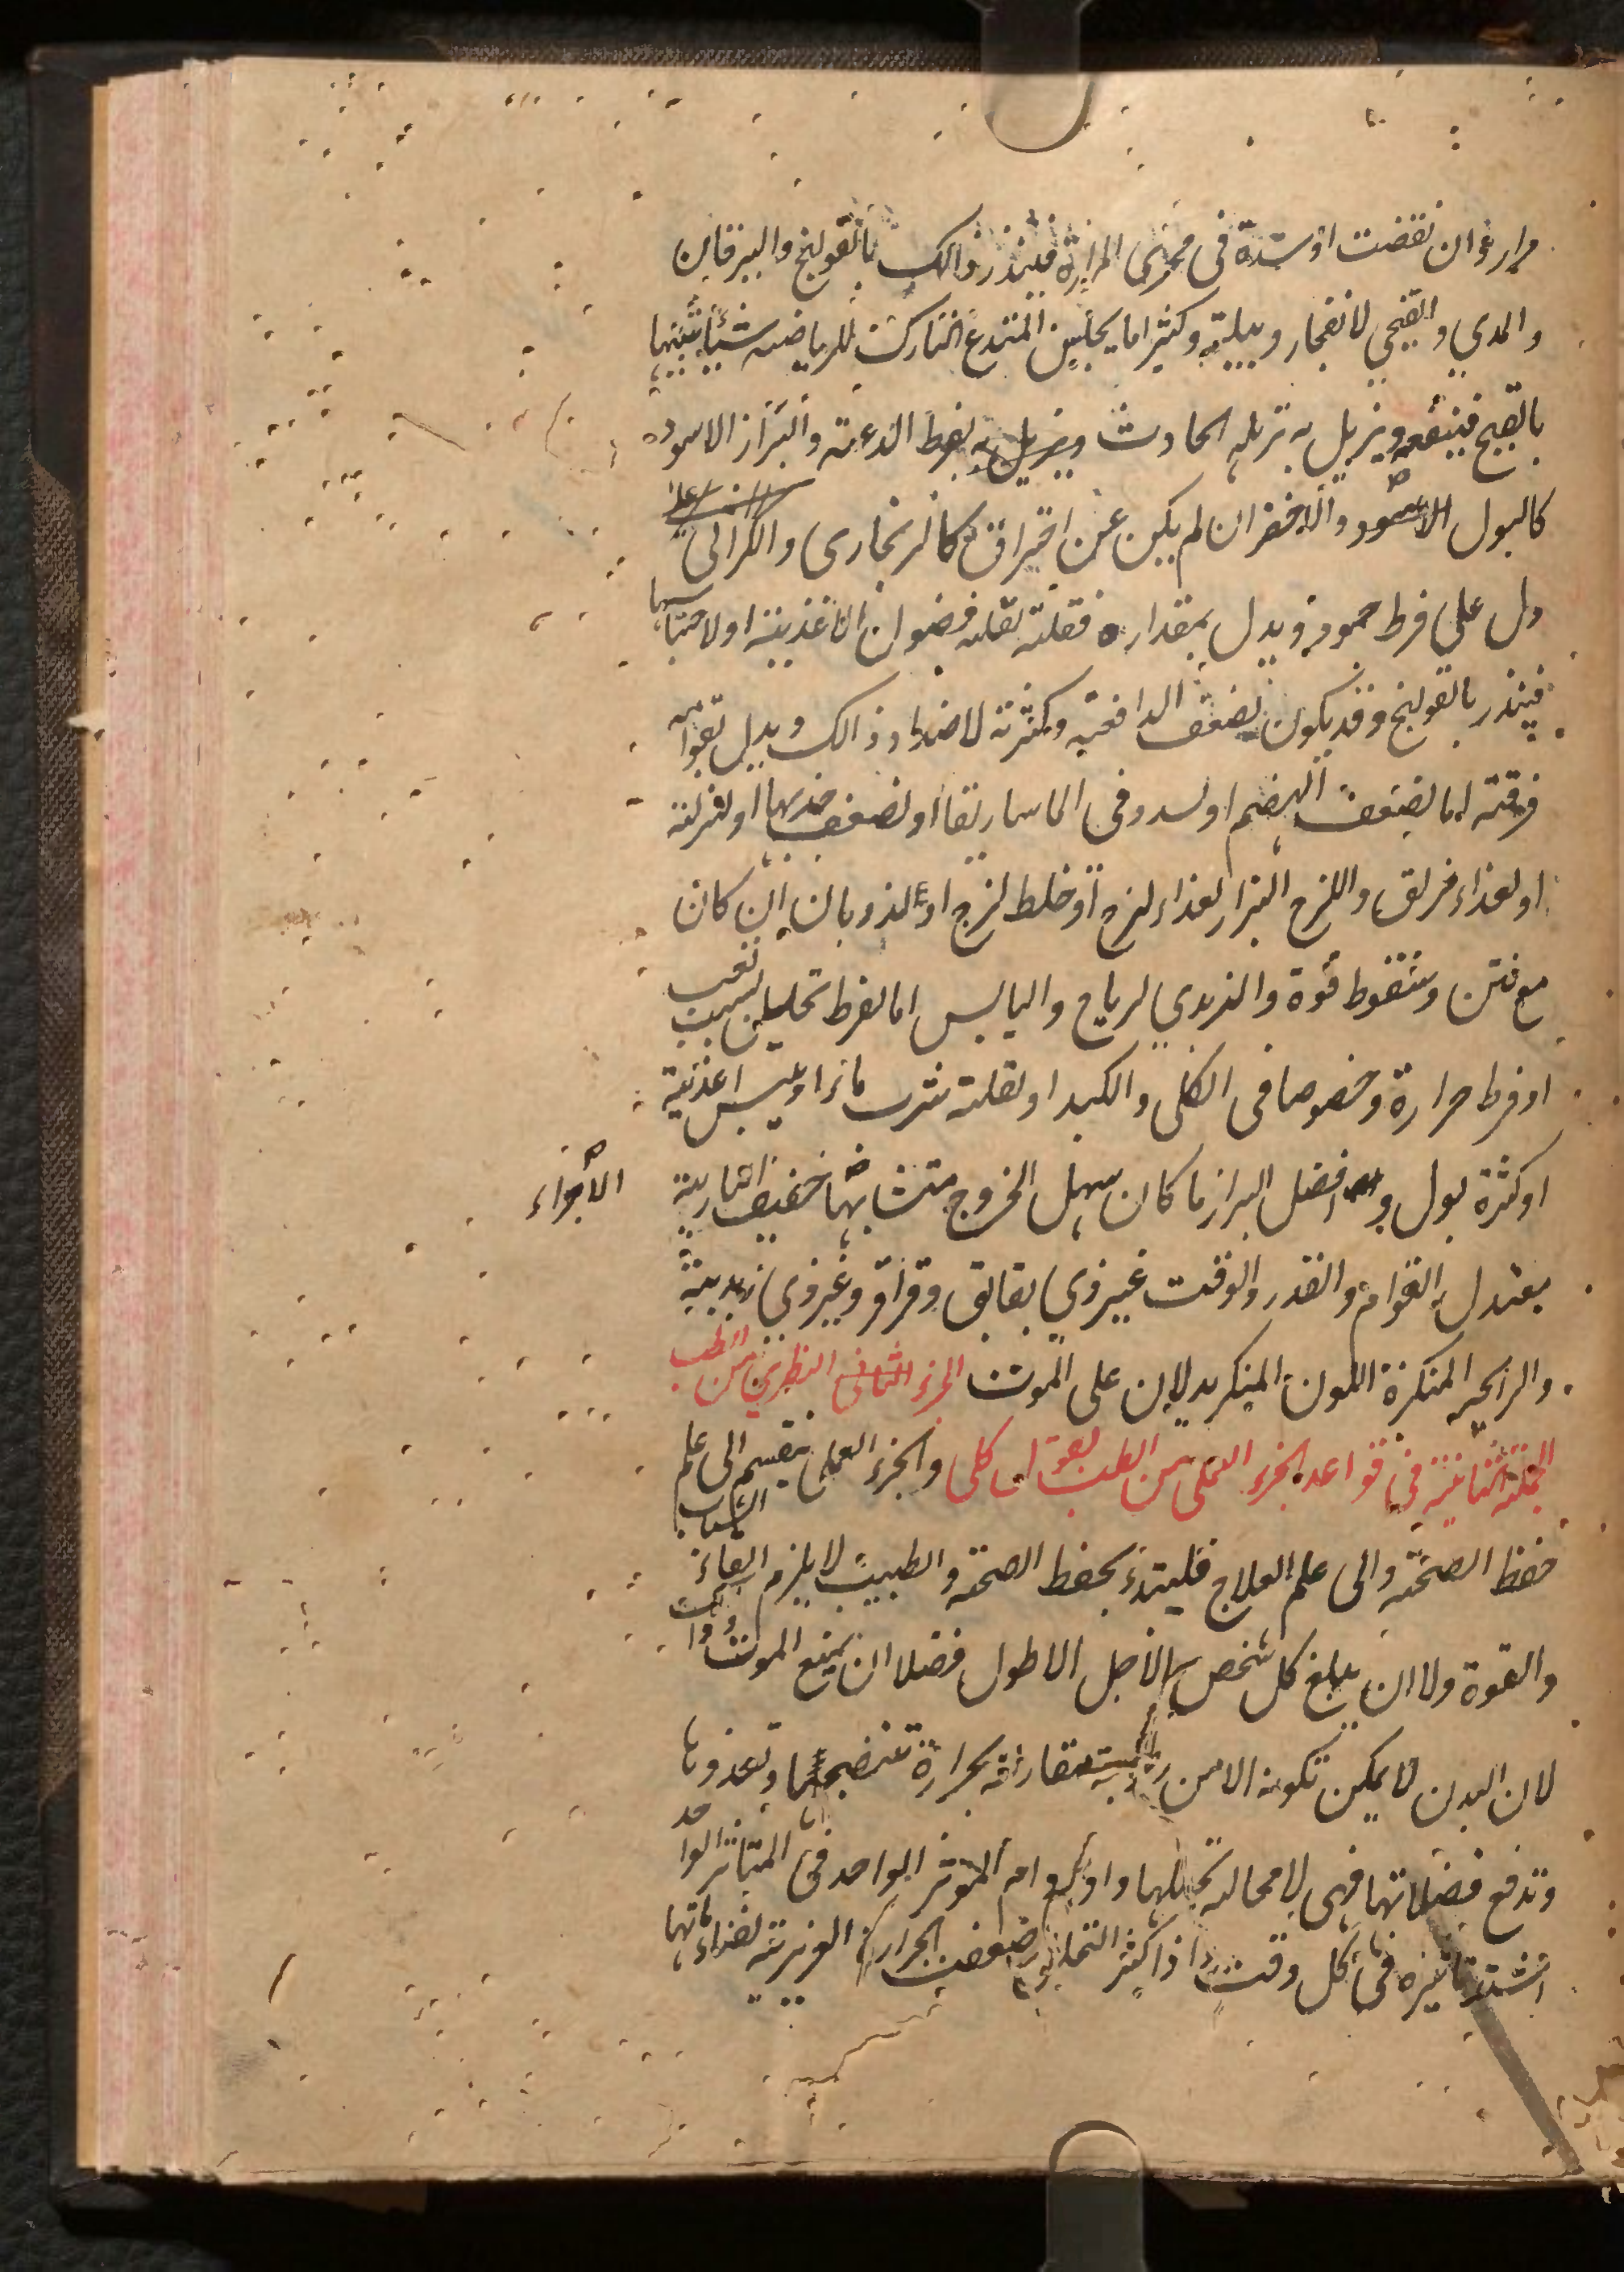 مرار وان نقصت او سدة فى مجرى المرارة فينذر ذالك بالقولنج واليرقان
والمدي والقيحي لانفجار دبيلة وكثيرا ما يجلس المتدع التارك للرياضة شيئا شبيها
بالقيح فينفعه ويزيل به ترهله الحادث بفرط الدعة والبراز الاسود
كالبول الاسود والاخضر ان لم يكن عن احتراق كالزنجارى والكراثى
دل على فرط جمود ويدل بمقداره فقلته لقلة فضول الاغذية او لاحتباسها
فينذر بالقولنج وقد يكون لضعف الدافعة وكثرته لاضداد ذالك ويدل بقوامه
فرقته اما لضعف الهضم او لسدد فى الماساريقا او لضعف جذبها او لنزلة
او لغذاء مزلق واللزج البراز لغذاء لزج او خلط لزج او للذوبان ان كان
مع نتن وسقوط قوة والزبدي لرياح واليابس اما لفرط تحليل بسبب تعب
او فرط حرارة وخصوصا فى الكلى والكبد او لقلة شرب ماء او ليبس اغذية
او كثرة بول وافضل البراز ما كان سهل الخروج متشابها خفيف النارية
الاجزاء
معتدل القوام والقدر والوقت غير ذي بقابق وقراقر وغير ذي زبدية
والرايحه المنكرة اللون المنكر يدلان على الموت الجزء الثانى النظري من الطب
الجملة الثانية فى قواعد الجزء العملى من الطب بقول كلى والجزء العملى ينقسم الى علم
حفظ الصحة والى علم العلاج فليبتدئ بحفظ الصحة والطبيب لا يلزم ابقاء الشباب
والقوة ولا ان يبلغ كل شخص الاجل الاطول فضلا ان يمنع الموت
لان البدن لا يمكن تكونه الا من رطوبة مقارنة بحرارة تنضجها وتغذوها
وتدفع فضلاتها فهى لا محالة تحللها ودوام المؤثر الواحد فى المتاثر الواحد
اشتد تاثيره فى كل وقت واذا كثر التحلل ضعفت الحرارة الغريزية لفناء مادتها